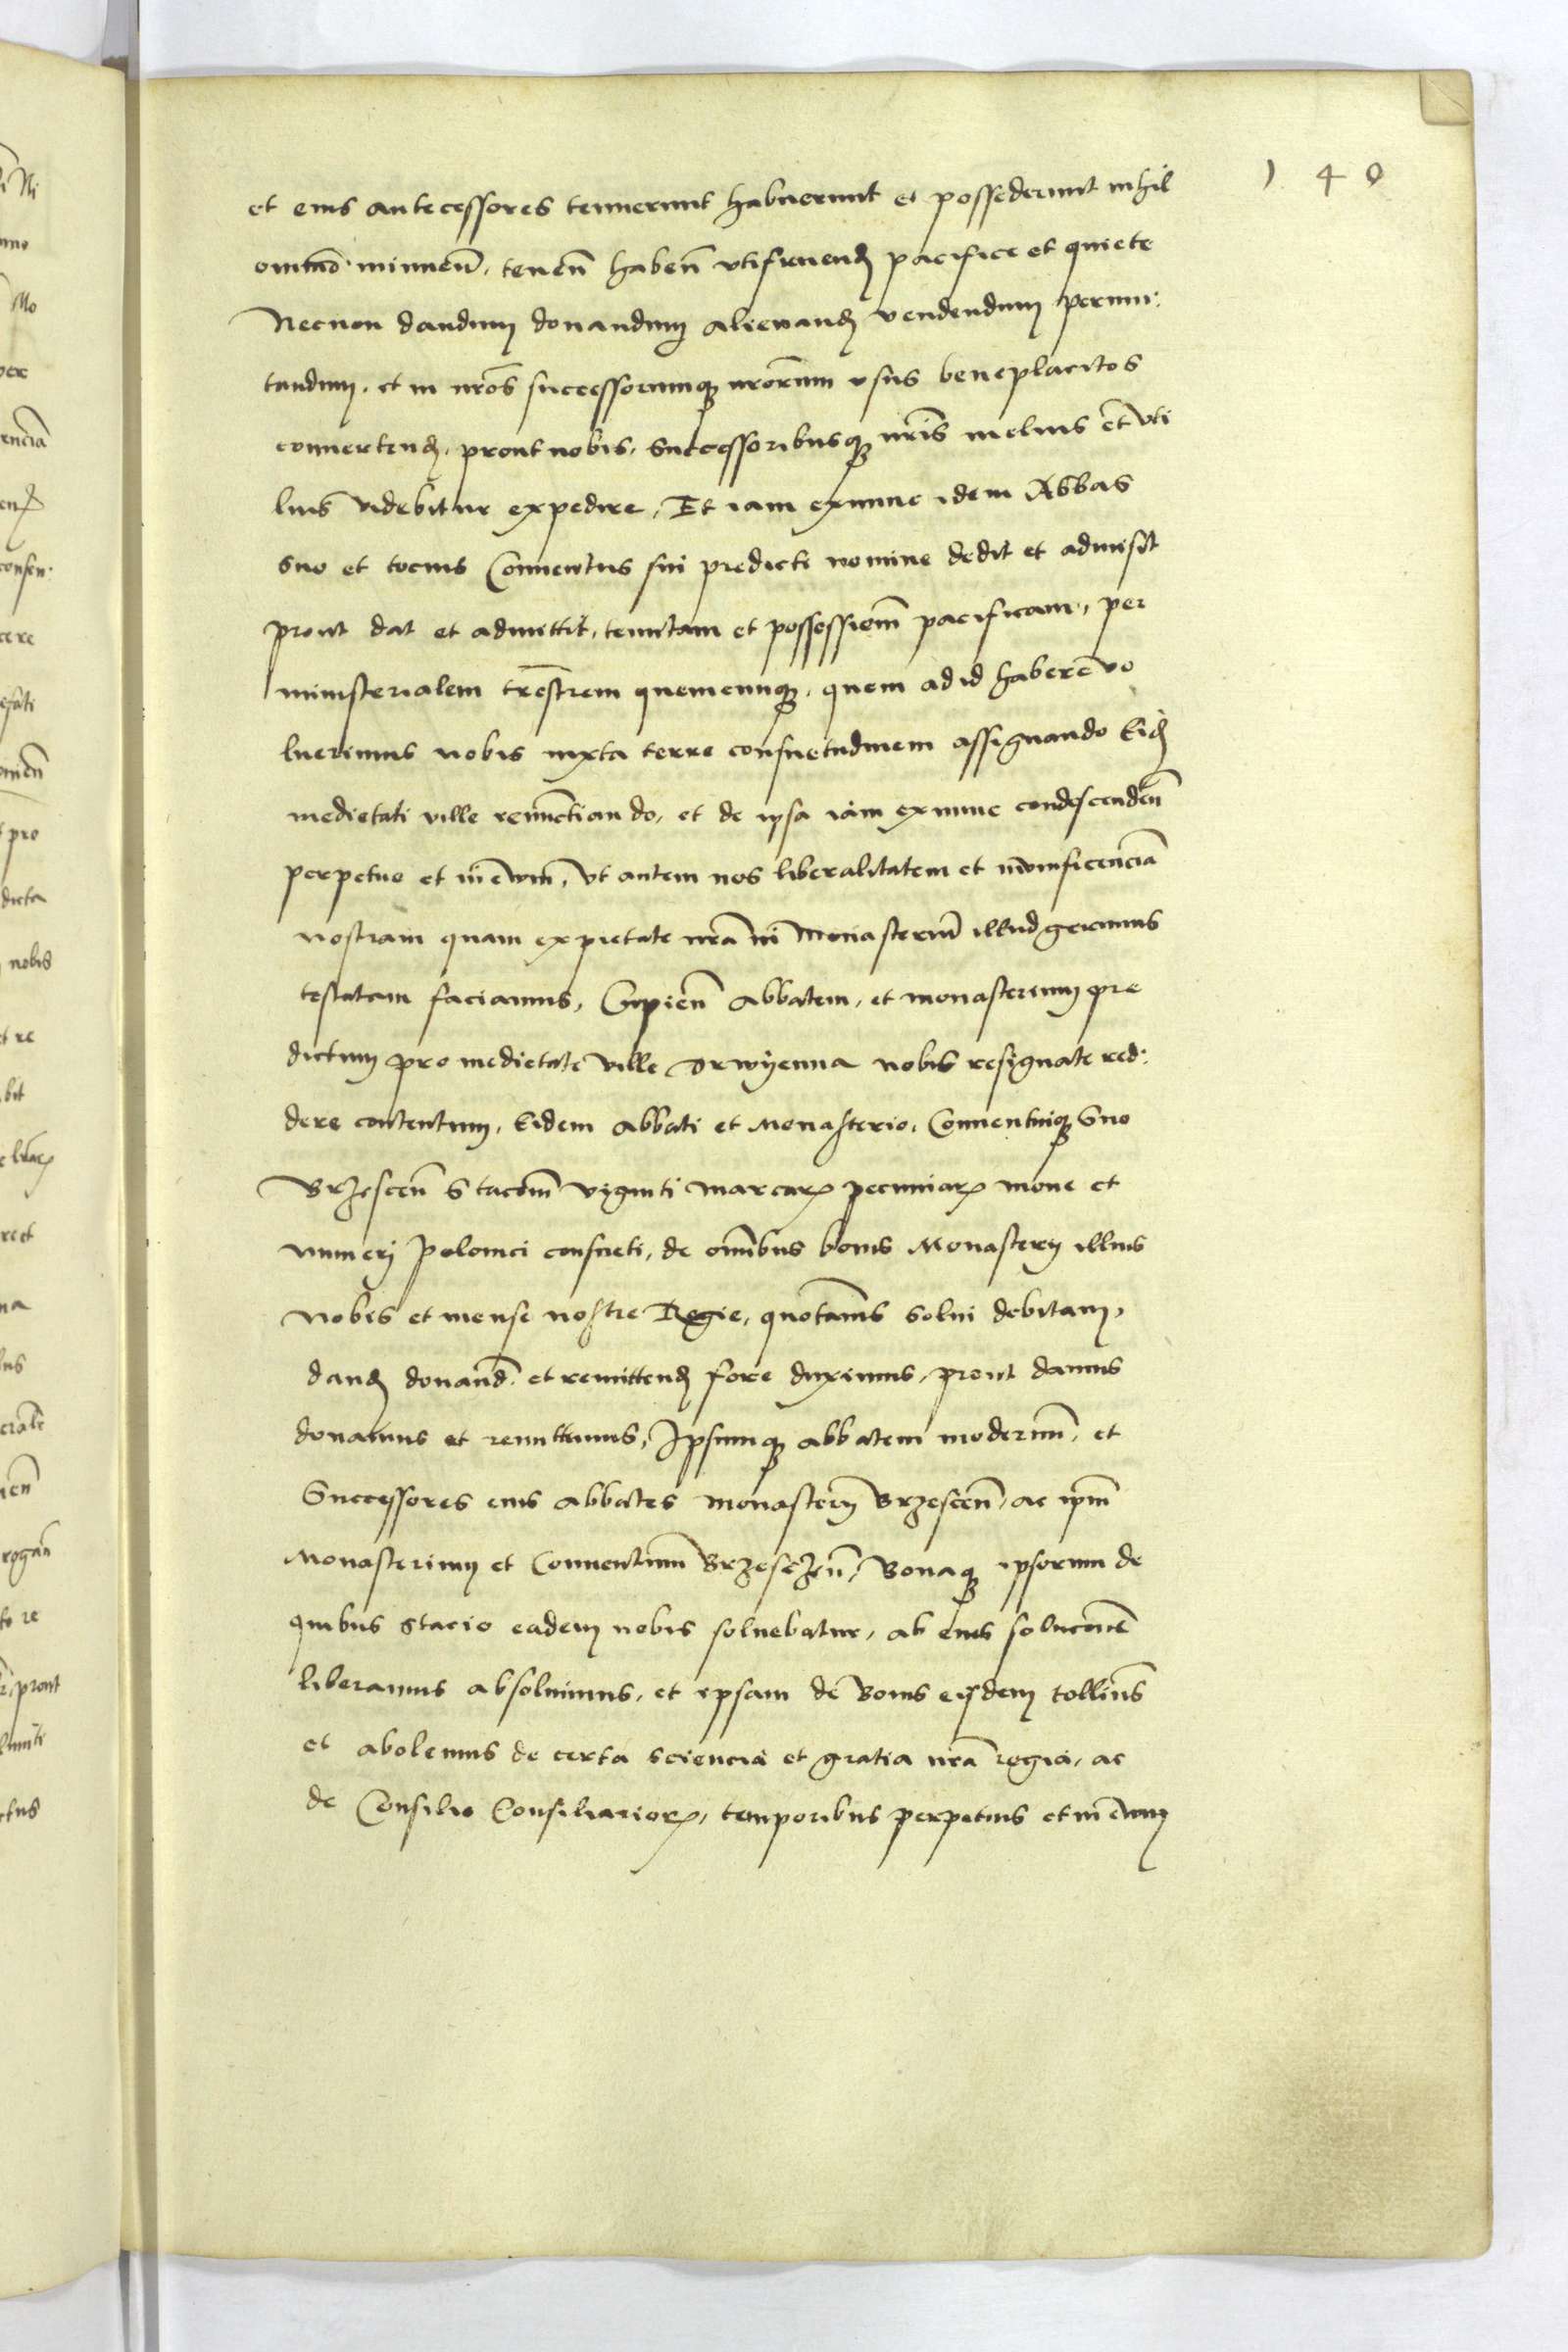 140
et eius antecessores tenuerunt habuerunt et possederunt nihil
omīno minuen̄, tenen̄ haben̄ utifruend pacifice et quiete
Necnon dandum donandum alienand vendendum permu:
tandum, et in nr̄os successorumq nr̄orum usus beneplacitos
convertend, prout nobis, Successoribusq nr̄is melius et uti
lius videbitur expedire, Et iam exnunc idem Abbas
Suo et tocius Conventus sui predicti nomine dedit et admisit
prout dat et admittit, tenutam et possessiem̄ pacificam, per
ministerialem tr̄estrem quemcunq, quem ad id habere vo
luerimus nobis iuxta terre consuetudinem assignando Eid
medietati ville renunctiando, et de ipsa iam exnunc condescenden̄
perpetuo et in ewm̄, Ut autem nos liberalitatem et munificencia
nostram quam ex pietate nr̄a in Monasteriu̅ illud gerimus
testatam faciamus, Cupien̄ Abbatem, et monasterium pre
dictum pro medietate ville Drwyenna nobis resignate red:
dere contentum, Eidem Abbati et Monasterio, Conventuiq Suo
Brzescen̄ Stacōm̄ viginti marcar pecuniar mone et
numeri Polonici consueti, de omībus bonis Monastery illius
nobis et mense nostre Regie, quotan̄is Solvi debitam,
dand donand et remittend fore duximus, prout damus
donamus et remittimus, Ipsumq abbatem modernu̅, et
Successores eius abbates monastery Brzescen̄, ac ip̄m
Monasterium et Conventum Brzesczen̄, Bonaq ipsorum de
quibus Stacio eadem nobis solvebatur, ab eius soluconē
liberamus absolvimus, et ipsam de Bonis eisdem tollim̄s
et abolemus de certa sciencia et gratia nr̄a regia, ac
de Consilio Consiliarior, temporibus perpetuis et in ewum